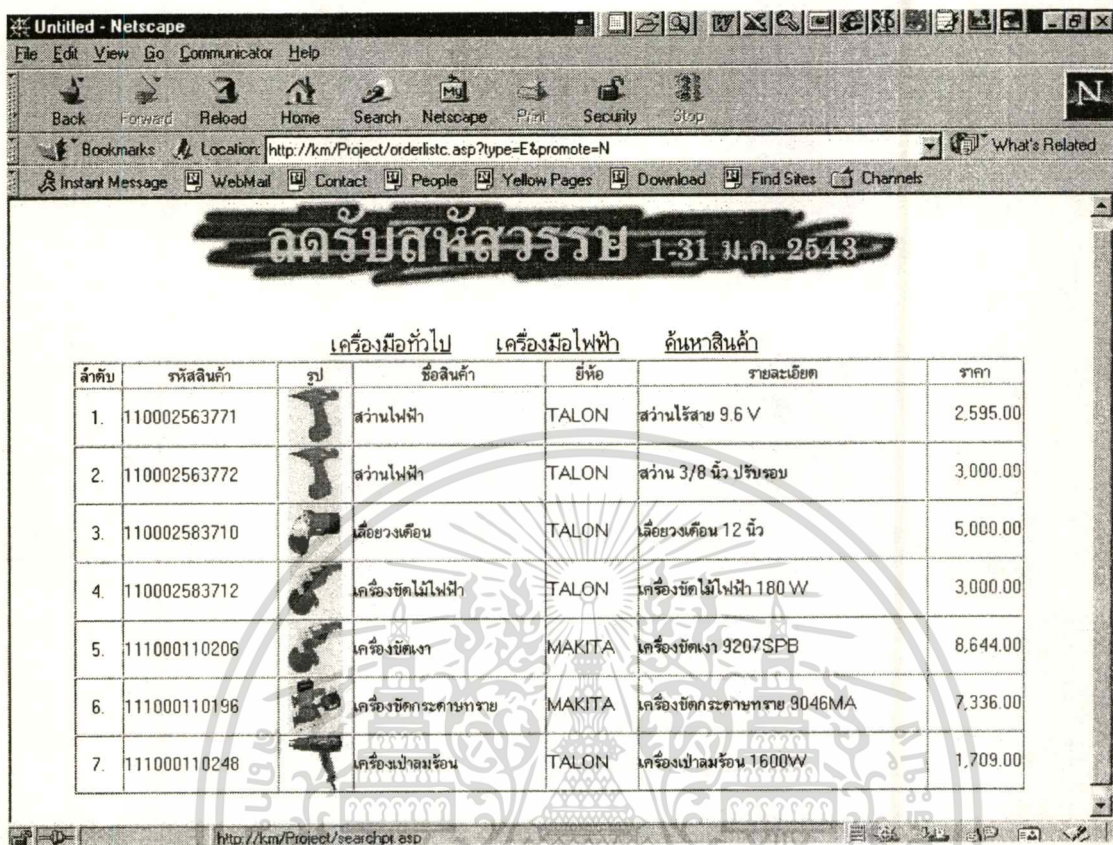 Untitled - Netscape
File Edit View Go Communicator Help
Back Forward Reload Home Search Netscape Print Security Stop
Bookmarks Location: http://km/Project/orderlistc.asp?type=E&promote=N What's Related
Instant Message WebMail Contact People Yellow Pages Download Find Sites Channels
ลดรับสหัสวรรษ 1-31 ม.ค. 2543
เครื่องมือทั่วไป เครื่องมือไฟฟ้า ค้นหาสินค้า
ลำดับ รหัสสินค้า รูป ชื่อสินค้า ยี่ห้อ รายละเอียด ราคา
1. 110002563771 สว่านไฟฟ้า TALON สว่านไร้สาย 9.6 V 2,595.00
2. 110002563772 สว่านไฟฟ้า TALON สว่าน 3/8 นิ้ว ปรับรอบ 3,000.00
3. 110002583710 เลื่อยวงเดือน TALON เลื่อยวงเดือน 12 นิ้ว 5,000.00
4. 110002583712 เครื่องขัดไม้ไฟฟ้า TALON เครื่องขัดไม้ไฟฟ้า 180 W 3,000.00
5. 111000110206 เครื่องขัดเงา MAKITA เครื่องขัดเงา 9207SPB 8,644.00
6. 111000110196 เครื่องขัดกระดาษทราย MAKITA เครื่องขัดกระดาษทราย 9046MA 7,336.00
7. 111000110248 เครื่องเป่าลมร้อน TALON เครื่องเป่าลมร้อน 1600W 1,709.00
http://km/Project/searchpr.asp